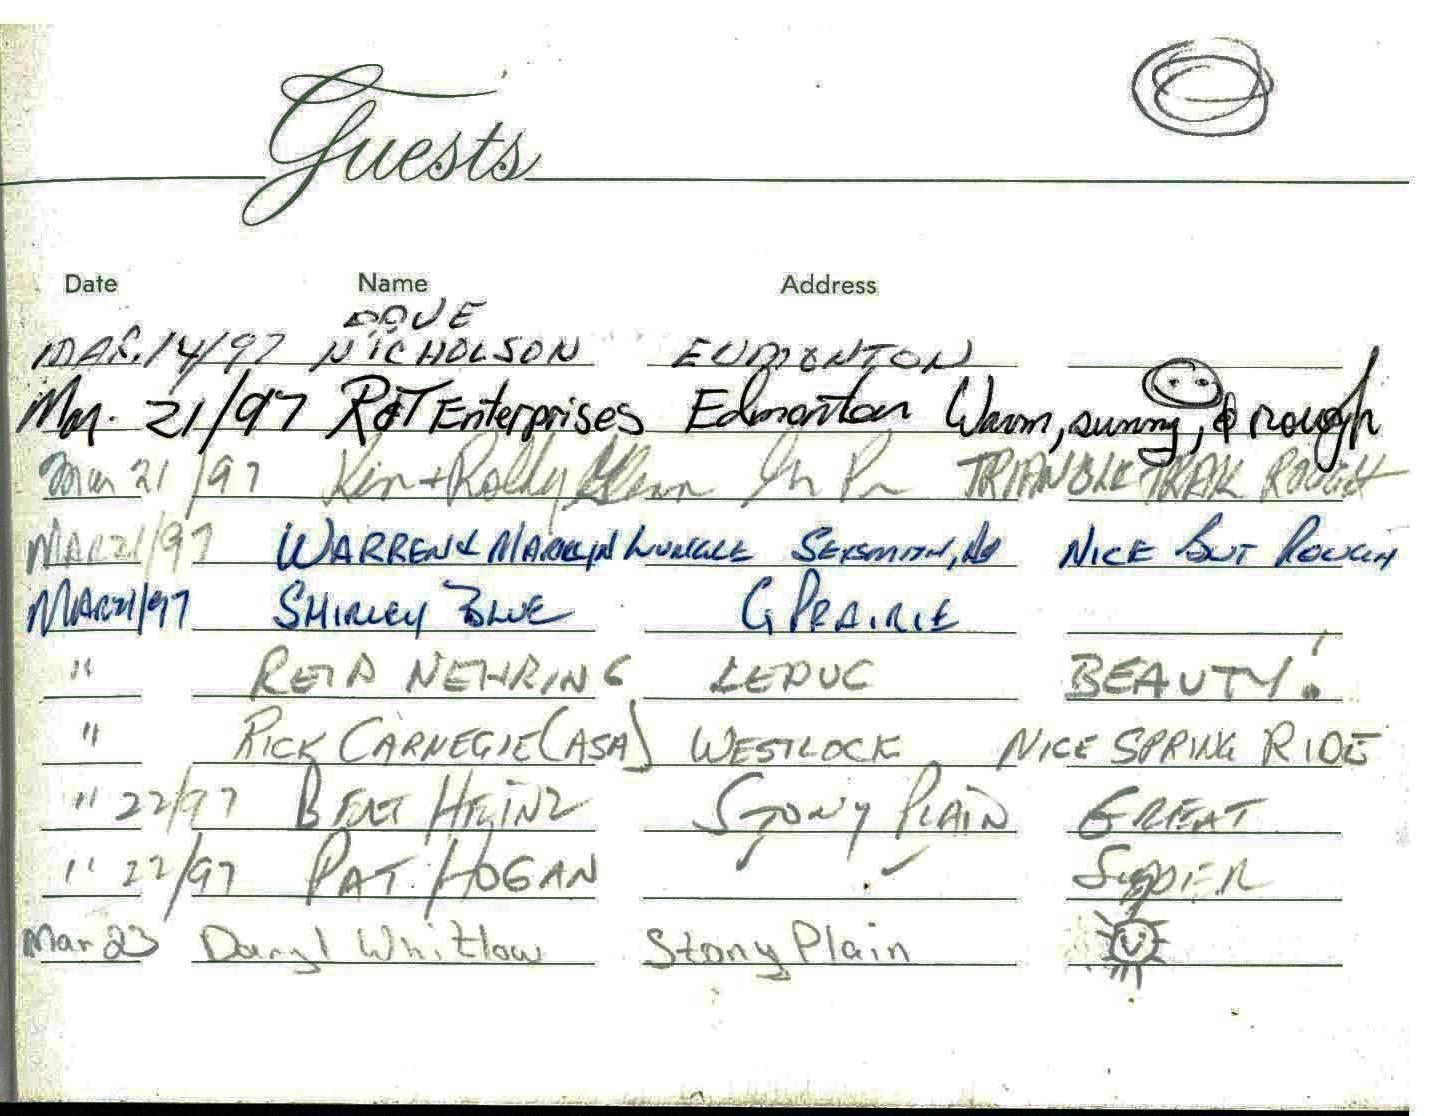 Guests
Date Name Address
DAVE
MAR. 14/97 NICHOLSON EDMONTON
Mar. 21/97 R&T Enterprises Edmonton Warm, sunny, & rough
Mar 21/97 Kim + Rolly Glenn Gr Pr TRIANGLE TRAIL ROUGH
MAR 21/97 WARREN & MARILYN SEXSMITH, AB NICE BUT ROUGH
MAR 21/97 SHIRLEY BLUE G PRAIRIE
" REID NEHRING LEDUC BEAUTY!
" RICK CARNEGIE (ASA) WESTLOCK NICE SPRING RIDE
" 22/97 BERT HEINZ STONY PLAIN GREAT
" 22/97 PAT HOGAN " " SUPER
Mar 23 Daryl Whitlow Stony Plain